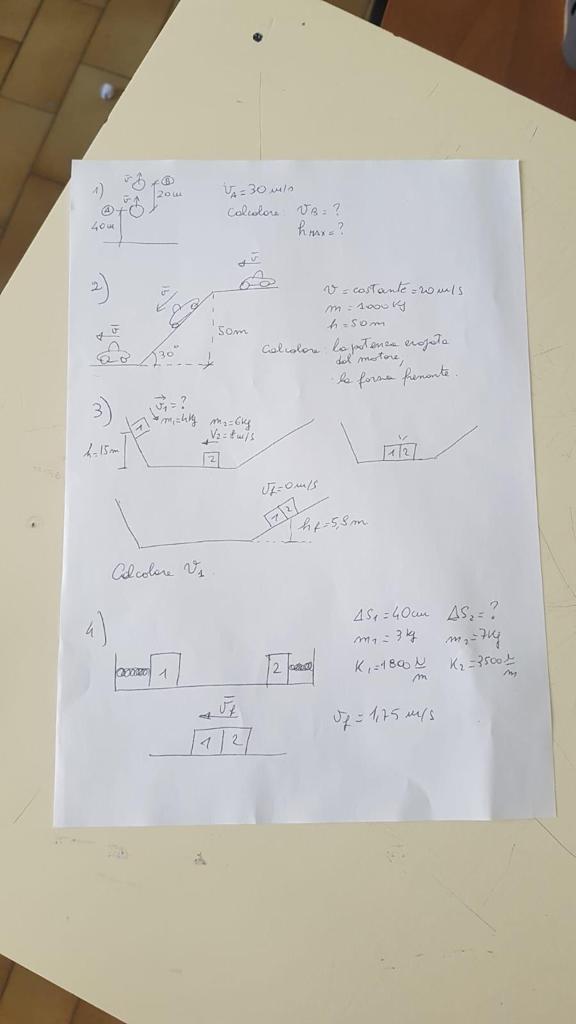 1) v̄ Ⓑ
v̄ 20m
Ⓐ
40m
v_A = 30 m/s
Calcolare: v_B = ?
h_MAX = ?
2) v̄
v̄
v̄
50m
30°
v = costante = 20 m/s
m = 1000 Kg
h = 50 m
Calcolare: la potenza erogata
dal motore,
la forza frenante.
3) v⃗₁ = ?
1 m₁ = 4Kg m₂ = 6Kg
h = 15m V₂ = m/s
2
v̄
1 2
v̄_f = 0 m/s
1 2
h_f = 5,9 m
Calcolare V₁.
4)
ΔS₁ = 40cm ΔS₂ = ?
m₁ = 3 kg m₂ = 7Kg
K₁ = 1800 N/m K₂ = 3500 N/m
1 2
v̄_f
1 2
v̄_f = 1,75 m/s